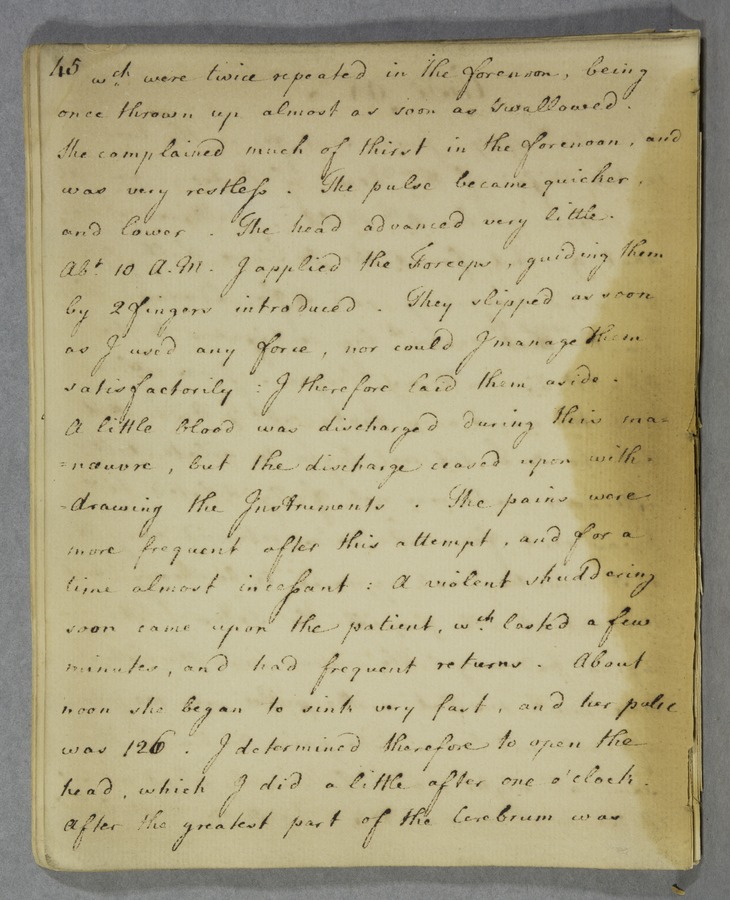 45 wch. were twice repeated in the forenoon, being
once thrown up almost as soon as swallowed.
She complained much of thirst in the forenoon, and
was very restless. The pulse became quicker,
and lower. The head advanced very little.
Abt. 10 A.M. I applied the Forceps, guiding them
by 2 fingers introduced. They slipped as soon
as I used any force, nor could I manage them
satisfactorily: I therefore laid them aside.
A little blood was discharged during this ma=
=nœuvre, but the discharge ceased upon with=
=drawing the Instruments. The pains were
more frequent after this attempt, and for a
time almost incessant: A violent shuddering
soon came upon the patient, wch. lasted a few
minutes, and had frequent returns. About
noon she began to sink very fast, and her pulse
was 126. I determined therefore to open the
head, which I did a little after one o'clock.
After the greatest part of the Cerebrum was